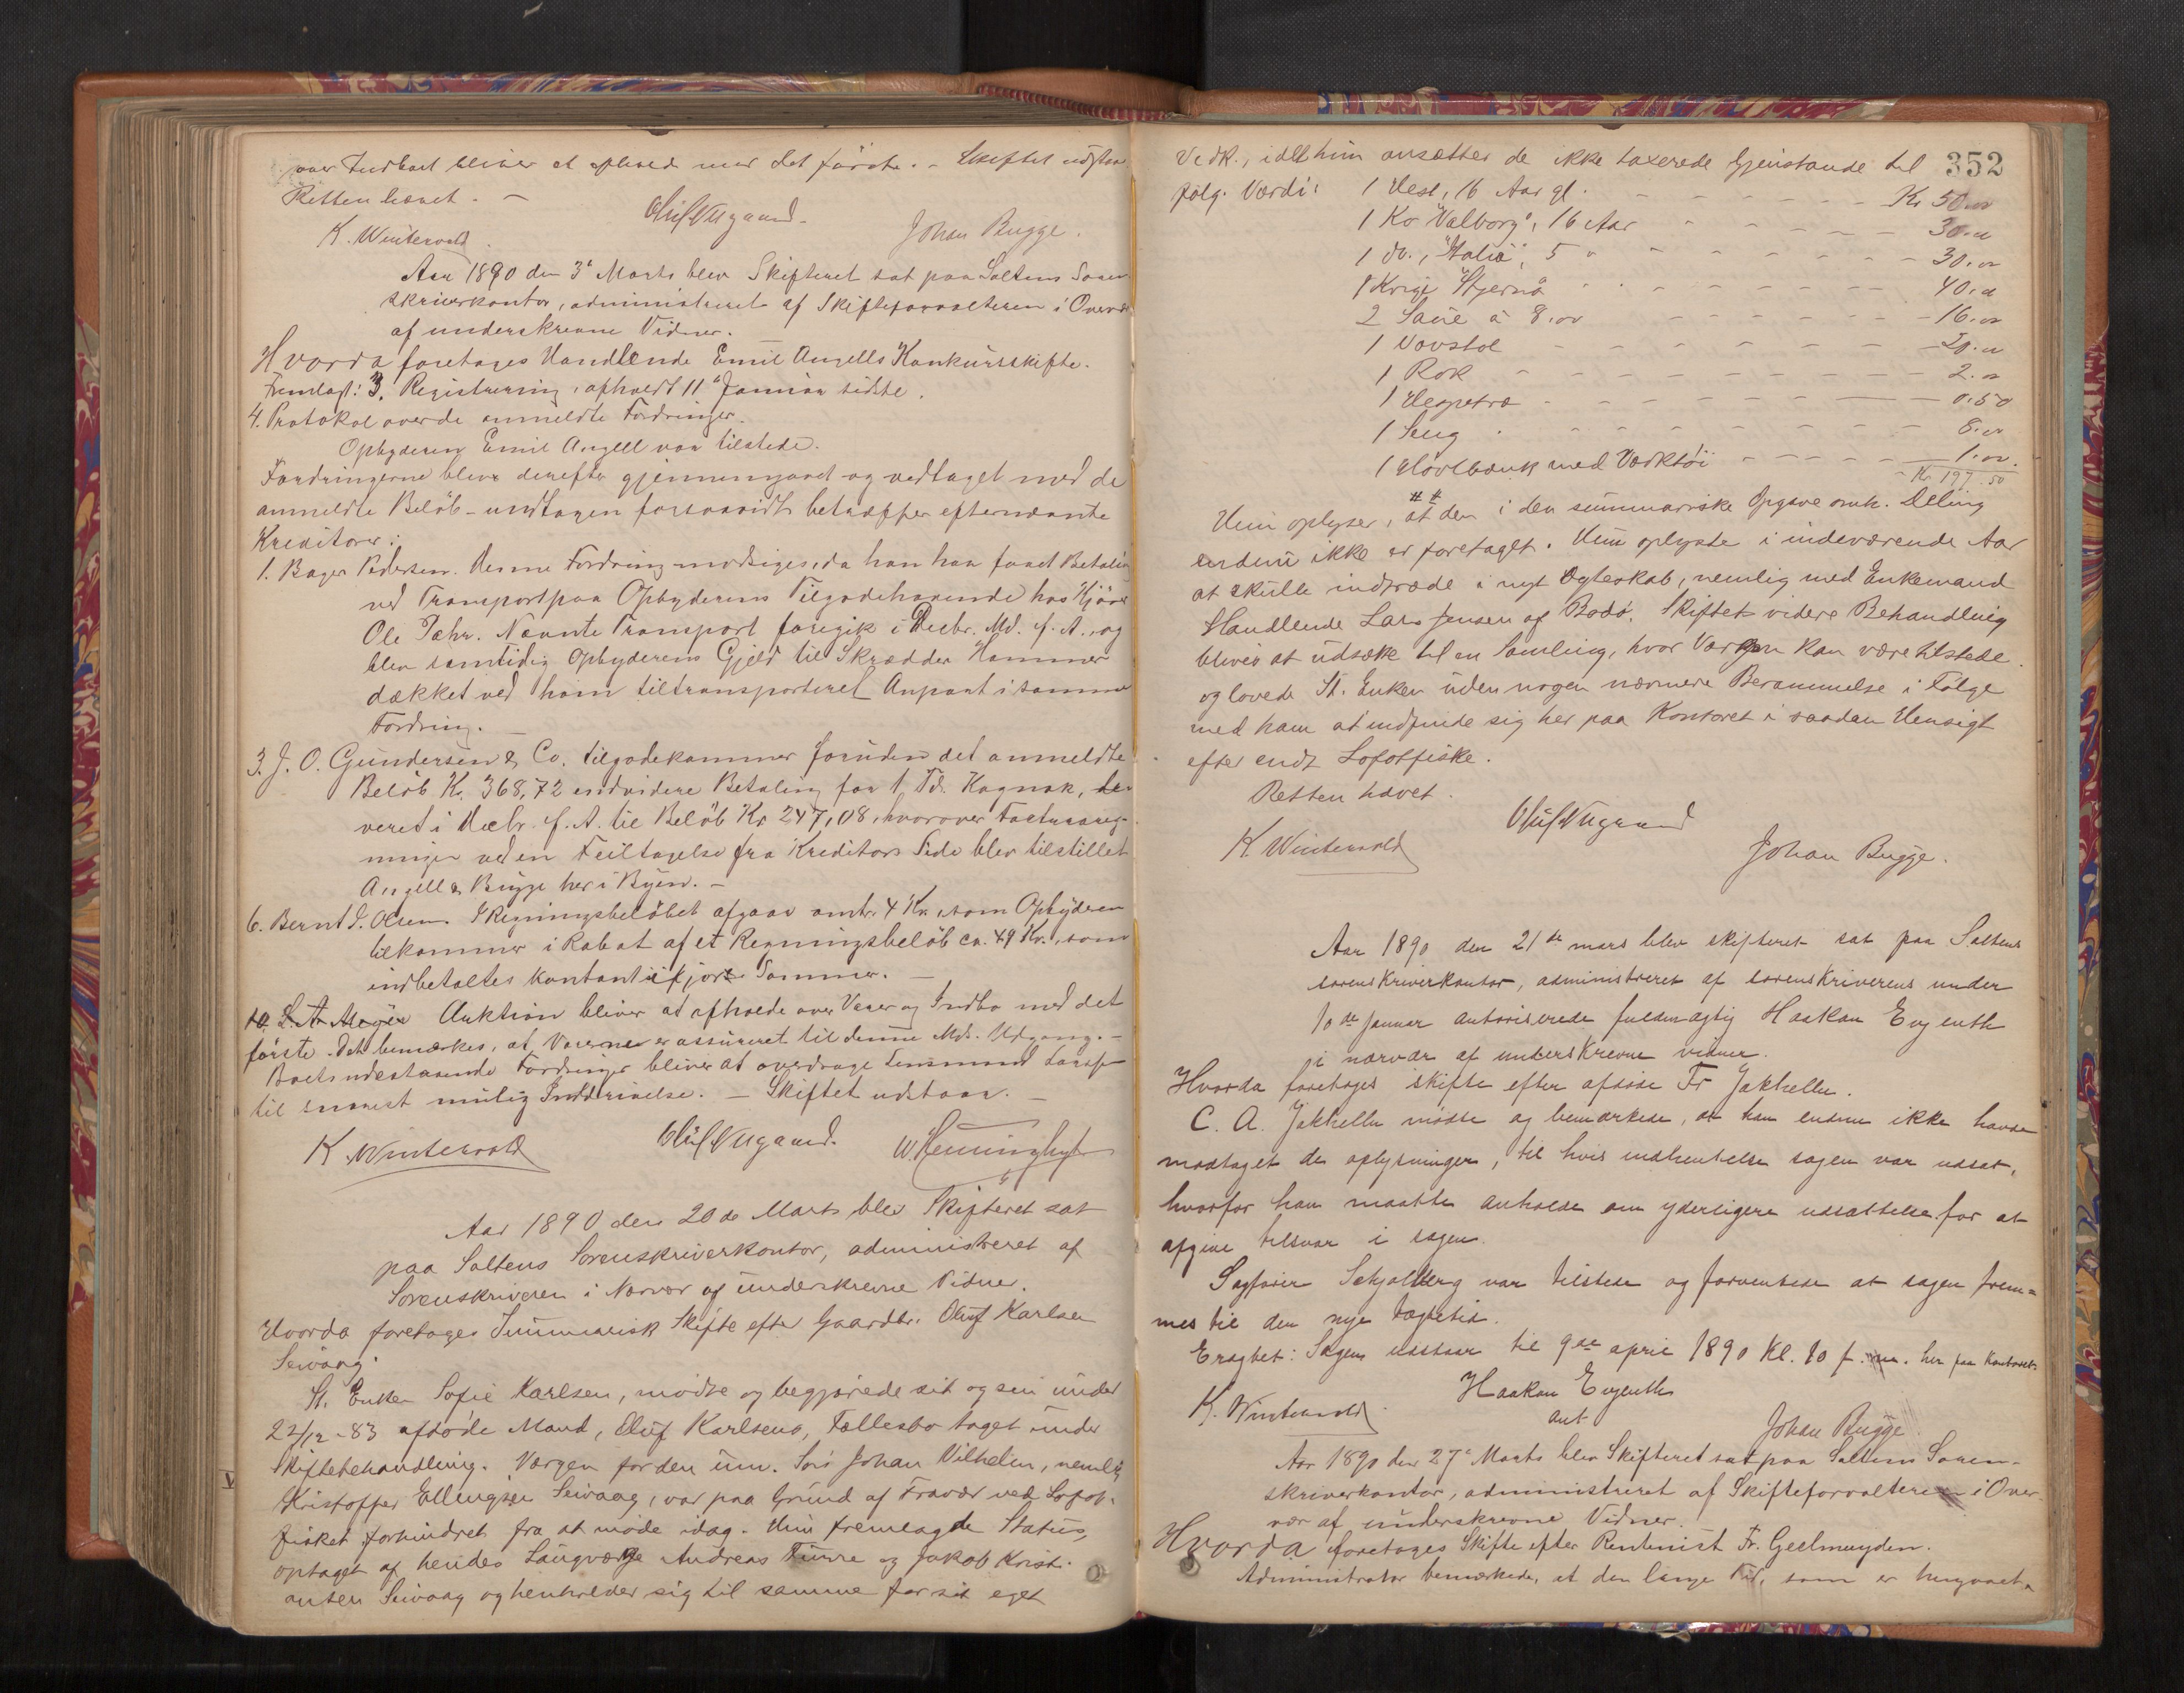 over Indboet bliver at afholde med det første. – Skiftet udstaar
Retten hævet. –
K. Winterwold. Oluf Nygaard. Johan Bugge.
Aar 1890 den 3d Marts blev Skifteret sat paa Saltens Soren-
skriverkontor, administreret af Skifteforvalteren i Overvær
af underskrevne Vidner.
Hvorda foretages Handlende Emil Angells Konkursskifte.
Fremlagt: 3. Registrering, afholdt 11te Januar sidste.
4. Protokol over de anmeldte Fordringer.
Opbyderen Emil Angell var tilstede.
Fordringerne blev derefter gjennemgaaet og vedtaget med de
anmeldte Beløb – undtagen forsaavidt betræffer efternævnte
Kreditorer:
1. Bager Pedersen. Denne Fordring modsiges, da han har faaet Betaling
ved Transport paa Opbyderens Tilgodehavende hos
Ole Nævnte Transport foregik i Decbr. Md. f. A., og
blev samtidig Opbyderens Gjeld til Skrædder Hammer
dækket ved ham tiltransporteret Anpart i samme
Fordring. –
3. J. O. Gundersen & Co. tilgodekommer foruden det anmeldte
Beløb Kr. 368,72 endvidere Betaling for 1 Td. Kognak, le-
veret i Decbr. f. A. til Beløb Kr 247,08, hvorover Facturareg-
ningen ved en Feiltagelse fra Kreditors Side blev tilstillet
Angell & Bugge her i Byen. –
6. Bernt J. Olsen. I Regningsbeløbet afgaar omtr. 4 Kr. som Opbyderen
tilkommer i Rabat af et Regningsbeløb ca. 49 Kr., som
indbetaltes kontant ifjor Sommer. –
10. L. A. Meyer Auktion bliver at afholde over Varer og Indbo med det
første. Det bemærkes, at Varerne er assureret til denne Mds. Udgang. –
Boets udestaaende Fordringer bliver at overdrage Lensmand
til snarest mulig Inddrivelse. – Skiftet udstaar. –
K. Winterwold Oluf Nygaard.
Aar 1890 den 20de Marts blev Skifteret sat
paa Saltens Sorenskriverkontor, administreret af
Sorenskriveren i Nærvær af underskrevne Vidner.
Hvorda foretages Summarisk Skifte efter Gaardbr. Oluf Karlsen
Seivaag.
St. Enken Sofie Karlsen, mødte og begjærede sit og sin under
22/12 – 83 afdøde Mand, Oluf Karlsens, Fællesbo taget under
Skiftebehandling. Værgen for den um. Søn Johan Vilhelm, nemlig
Kristoffer Ellingsen Seivaag, var paa Grund af Fravær ved Lofot-
fisket forhindret fra at møde idag. Hun fremlagde Status,
optaget af hendes Laugværge Andreas Tuvre og Jakob Kristi-
ansen Seivaag og henholder sig til samme for sit eget
352
Vedk., idet hun ansætter de ikke taxerede Gjenstande til
følg. Værdi: 1 Hest, 16 Aar gl. – – – Kr 50.00
1 Ko "Valborg", 16 Aar – – – 30.00
1 do., "Stalia", 5 " – – – 30.00
1 Kvige "Stjerna" – – – 40.00
2 Saue à 8.00 – – – 16.00
1 Vævstol – – – 20.00
1 Rok – – – 2.00
1 Hespetræ – – – 0.50
1 Seng – – – 8.00
1 Høvlbænk med Værktøi – – – 1.00.
Kr. 197.50
Hun oplyser, at den i den summariske Opgave omh. Deling
endnu ikke er foretaget. Hun oplyste i indeværende Aar
at skulle indtræde i nyt Ægteskab, nemlig med Enkemand
Handlende Lars Jensen af Bodø. Skiftet videre Behandling
bliver at udsætte til en Samling, hvor Værgen kan være tilstede.
og lovede St. Enken uden nogen nærmere Berammelse i Følge
med ham at indfinde sig her paa Kontoret i saadan Hensigt
efter endt Lofotfiske.
Retten hævet.
K. Winterwold Oluf Nygaard Johan Bugge.
Aar 1890 den 21de mars blev skifteret sat paa Saltens
sorenskriverkontor, administreret af sorenskriverens under
10de Januar autoriserede fuldmægtig Haakon Evjenth
i nærvær af underskrevne vidner.
Hvorda foretages skifte efter afdøde Fr Jakhelln.
C. A. Jakhelln mødte og bemærkede, at han endnu ikke havde
modtaget de oplysninger, til hvis indhentelse sagen var udsat,
hvorfor han maatte anholde om yderligere udsættelse for at
afgive tilsvar i sagen.
Sagfører Schjelberg var tilstede og forventede at sagen frem-
mes til den nye tægtetid.
Eragtet: Sagen udstaar til 9de april 1890 Kl. 10 f. m. her paa Kontoret.
K. Winterwold. Haakon Evjenth
aut Johan Bugge.
Aar 1890 den 27de Marts blev Skifteret sat paa Saltens Soren-
skriverkontor, administreret af Skifteforvalteren i Over-
vær af underskrevne Vidner.
Hvorda foretages Skifte efter Rentenist Fr. Geelmuyden.
Administrator bemærkede, at den lange Tid, som er hengaaet